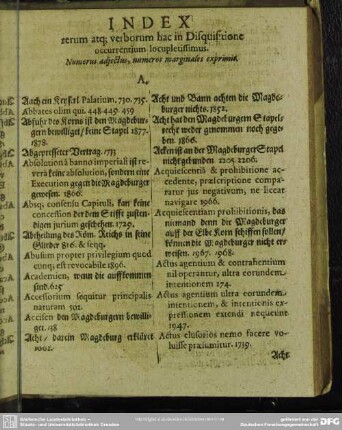 INDEX
rerum atq; verborum hac in Disquisitione
occurrentium locupletissimus.
Numerus adjectus, numeros marginales exprimit.
A.
Aach ein Keyserl. Palatium. 730. 735.
Abbates olim qui. 448. 449. 459
Abfuhr des Korns ist den Magdebur-
gen bewilliget / keine Stapel 1877.
1878.
Abgepresseter Vertrag. 1733
Absolution à banno imperiali ist re-
verà keine absolution, sondern eine
Execution gegen die Magdeburger
gewesen. 1866.
Absq; consensu Capituli, kan keine
concession der dem Stifft zusten-
digen jurium geschehen. 1729.
Abtheilung des Röm. Reichs in seine
Glieder 816. & seqq.
Abusum propter privilegium quod
cunq; est revocabile 1896.
Academien, wenn die auffkommen
sind. 625
Accessorium sequitur principalis
naturam 501.
Accisen den Magdeburgern bewilli-
get. 38
Acht / darein Magdeburg erkläret
1002.
Acht und Bann achten die Magde-
burger nichts. 1852.
Acht hat den Magdeburgern Stapel-
recht weder genommen noch gege-
ben. 1866.
Acker ist an der Magdeburger Stapel
nicht gebunden 2205. 2206.
Acquiescentiâ & prohibitione ac-
cedente, præscriptione compara-
tur jus negativum, ne liceat
navigare 1966.
Acquiescentiam prohibitionis, das
niemand denn die Magdeburger
auff der Elbe Korn schiffen sollen /
können die Magdeburger nicht er-
weisen. 1967. 1968.
Actus agentium & contrahentium
nil operantur, ultra eorundem
intentionem 274.
Actus agentium ultra eorundem
intentionem, & intentionis ex-
pressionem extendi nequeunt
1947.
Actus elusorios nemo facere vo-
luisse præsumitur. 1739.
Acht